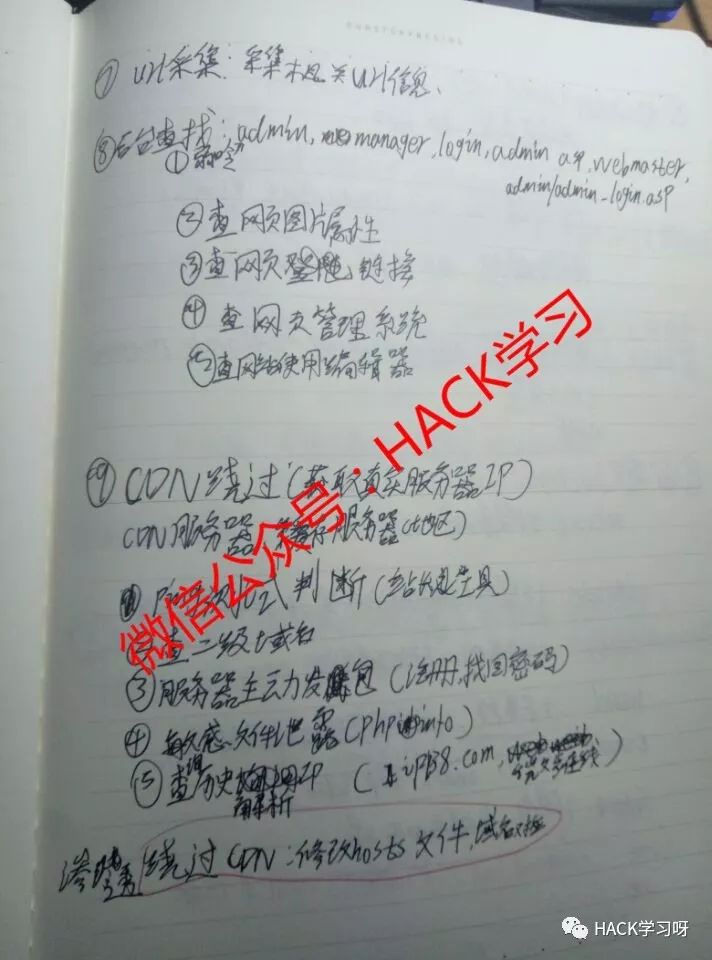 ⑦ url采集：采集相关url信息、
⑧后台查找：admin, manager, login, admin asp, webmaster,
admin/admin_login.asp
①
②查网页图片属性
③查网页 链接
④ 查网页管理系统
⑤查网站使用编辑器
⑨ CDN绕过（获取真实服务器IP）
CDN服务器 服务器（地区）
判断（站长工具）
查二级域名
③服务器主动发 包（注册,找回密码）
④ 敏感文件泄露（phpinfo）
⑤查询历史 IP（ ip138.com, ）
解析
渗透 绕过CDN：修改hosts文件,域名
微信公众号：HACK学习
HACK学习呀